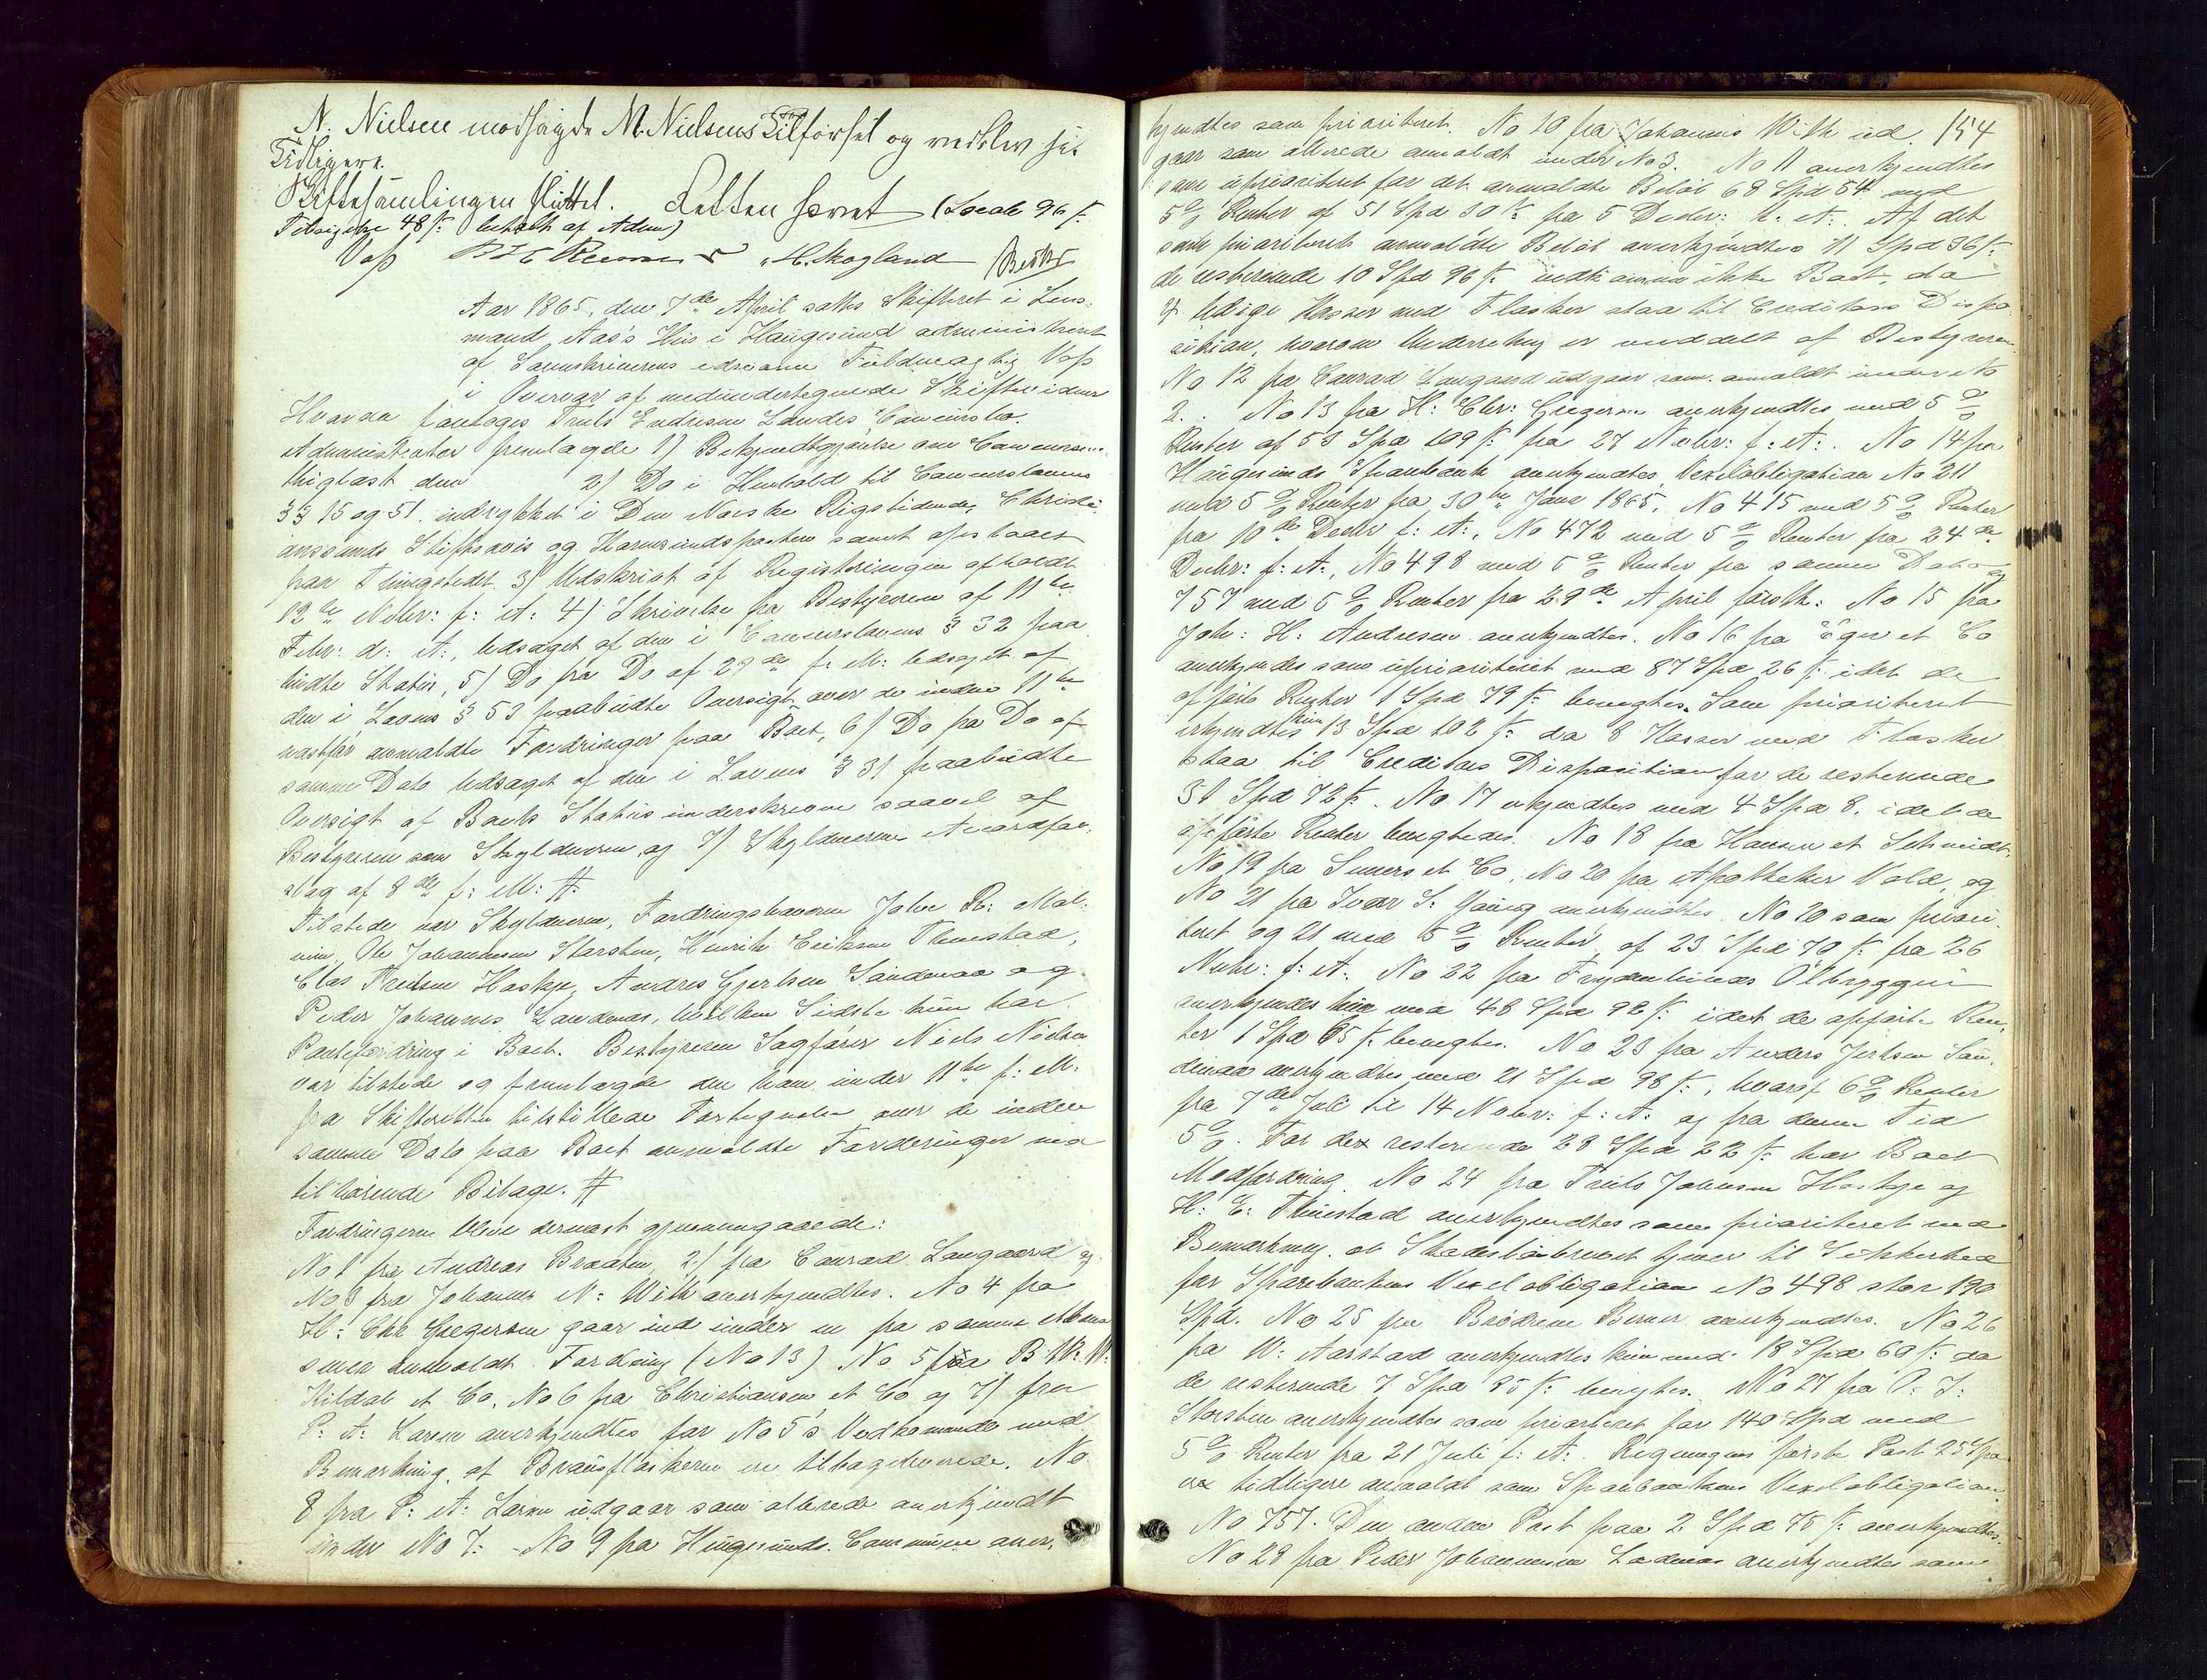 N. Nielsen modsagde M. Nielsens Tilførsel og vedblev sit
Tidligere.
Skiftesamlingen sluttet. Retten hævet (Locale 96 s:
Tilsigelse 48 s: betalt af Adm)
Vass H. Skogland
Aar 1865, den 7de April sattes Skifteret i Lens-
mand Aas's Hus i Haugesund administreret
af Sorenskriverens edsvorne Fuldmægtig Vass
i Overvær af medundertegnede Skiftevidner
Hvorda foretoges Truls Endresen Landes Concursbo.
Administrator fremlagde 1) Bekjendtgjørelse om Concursen
thinglæst den 2) Do i Henhold til Concurslovens
§§ 15 og 51. indrykket i Den Norske Rigstidende, Christi-
anssands Stiftsavis og Karmsundsposten samt opslaaet
paa Thingstedet 3) Udskrift af Registreringen afholdt
12te Novbr: f: A: 4) Skrivelse fra Bestyreren af 11te
Febr: d: A:, ledsaget af den i Concurslovens § 32 paa
budte Status, 5) Do fra Do af 28de f: M: ledsaget af
den i Lovens § 53 paabudte Oversigt over de inden 11te
næstfør anmeldte Fordringer paa Boet, 6) Do fra Do af
samme Dato ledsaget af den i Lovens § 31 paabudte
Oversigt af Boets Status underskreven saavel af
Bestyreren som Skyldneren, og 7) Skyldnerens Accordfor-
slag af 8de f: M: #
Tilstede var Skyldneren, Fordringshaverne John R: Mal-
min, Ole Johannesen Storsten, Henrik Eriksen Thuestad,
Clas Trulsen Haskje, Andres Gjertsen Sandenaa og
Peder Johannes. Landenes, hvilken Sidste kun har
Pantefordring i Boet. Bestyreren Sagfører Niels Nielsen
var tilstede og fremlagde den ham under 11te f: M:
fra Skifteretten tilstillede Fortegnelse over de inden
samme Dato paa Boet anmeldte Fordringer med
tilhørende Bilage. #
Fordringerne bleve dernæst gjennemgaaede:
No 1 fra Andreas Braaten, 2) fra Conrad Langaard og
No 3 fra Johannes N: With anerkjendtes. No 4 fra
H: Chr Gregersen gaar ind under en fra samme Mand
senere anmeldt Fordring (No 13) No 5 fra B: W:
Kildal et Co, No 6 fra Christiansen et Co og 7) fra
P: A: Larsen anerkjendtes for No 5's Vedkommende med
Bemærkning, at Brændflaskerne ere tilbageleverede. No
8 fra P: A: Larsen udgaar som allerede anerkjendt
under No 7: - No 9 fra Haugesunds Commune aner-
154
kjendtes som prioriteret. No 10 fra Johannes With ud
gaar som allerede anmeldt under No 3. No 11 anerkjendtes
som uprioriteret for det anmeldte Beløb 68 Spd 54 med
5 % Renter af 51 Spd 30 s: fra 5 Decbr: f: A: Af det
som prioriteret anmeldte Beløb anerkjendtes 11 Spd 36 s:
de resterende 10 Spd 96 s: vedkommer ikke Boet, da
ledige Kasser med Flasker staa til Creditors Dispo-
sition, hvorom Underretning er meddelt af Bestyreren
No 12 fra Conrad Langaard udgaar som anmeldt under No
2. No 13 fra H: Chr: Gregersen anerkjendtes med 5 %
Renter af 53 Spd 109 s: fra 27 Novbr: f: A:. No 14 fra
Haugesunds Sparebank anerkjendtes Vexelobligation No 211
med 5 % Renter fra 30te Janr 1865, No 415 med 5 % Renter
fra 10de Decbr f: A:, No 472 med 5 % Renter fra 24de
Decbr: f: A:, No 498 med 5 % Renter fra samme Dato og
757 med 5 % Renter fra 29de April førstk: No 15 fra
Joh: H: Andresen anerkjendtes. No 16 fra Eger et Co
anerkjendes som uprioriteret med 87 Spd 26 s: idet de
opførte Renter 1 Spd 79 s: benegtes. Som prioriteret
erkjendtes kun 13 Spd 102 s: da 8 Kasser med Flasker
staa til Creditors Disposition for de resterende
31 Spd 72 s:. No 17 erkjendtes med 4 Spd 8. idet de
opførte Renter benegtedes. No 18 fra Hansen et Schmidt,
No 19 fra Sømers et Co, No 20 fra Apotheker Vold, og
No 21 fra Iver S: Yding anerkjendtes. No 20 som priori-
teret og 21 med 5 % Renter af 23 Spd 70 s: fra 26
Novbr: f: A: No 22 fra Frydenlunds Ølbryggeri
anerkjendes kun med 48 Spd 98 s: idet de opførte Ren-
ter 1 Spd 65 s: benegtes. No 23 fra Anders Jertsen San-
denaa anerkjendtes med 21 Spd 98 s:, hvoraf 6 % Renter
fra 7de Juli til 14 Novbr: f: A: og fra denne Tid
5 %. For det resterende 28 Spd 22 s: har Boet
Modfordring. No 24 fra Truls Johnsen Haskje og
H: E: Thuestad anerkjendtes som prioriteret med
Bemærkning, at Skadesløsbrevet tjener til Sikkerhed
for Sparebankens Vexelobligation No 498 stor 190
Spd. No 25 fra Brødrene Berner anerkjendtes. No 26
fra W: Aarstad anerkjendtes kun med 18 Spd 60 s: da
de resterende 7 Spd 35 s: benegtes. No 27 fra O: J:
Storsten anerkjendtes som prioriteret for 140 Spd med
5 % Renter fra 21 Juli f: A: Regningens første Post 25 Spd
er tidligere anmeldt som Sparebankens Vexelobligation
No 757. Den anden Post paa 2 Spd 75 s: anerkjendtes.
No 28 fra Peder Johannesen Landenes anerkjendtes som